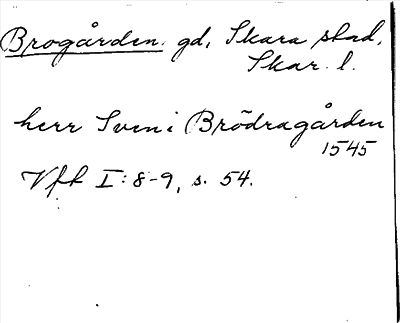 Brogården. gd, Skara stad,
Skar. l.
herr Sven i Brödragården
1545
Vfh I: 8-9, s. 54.